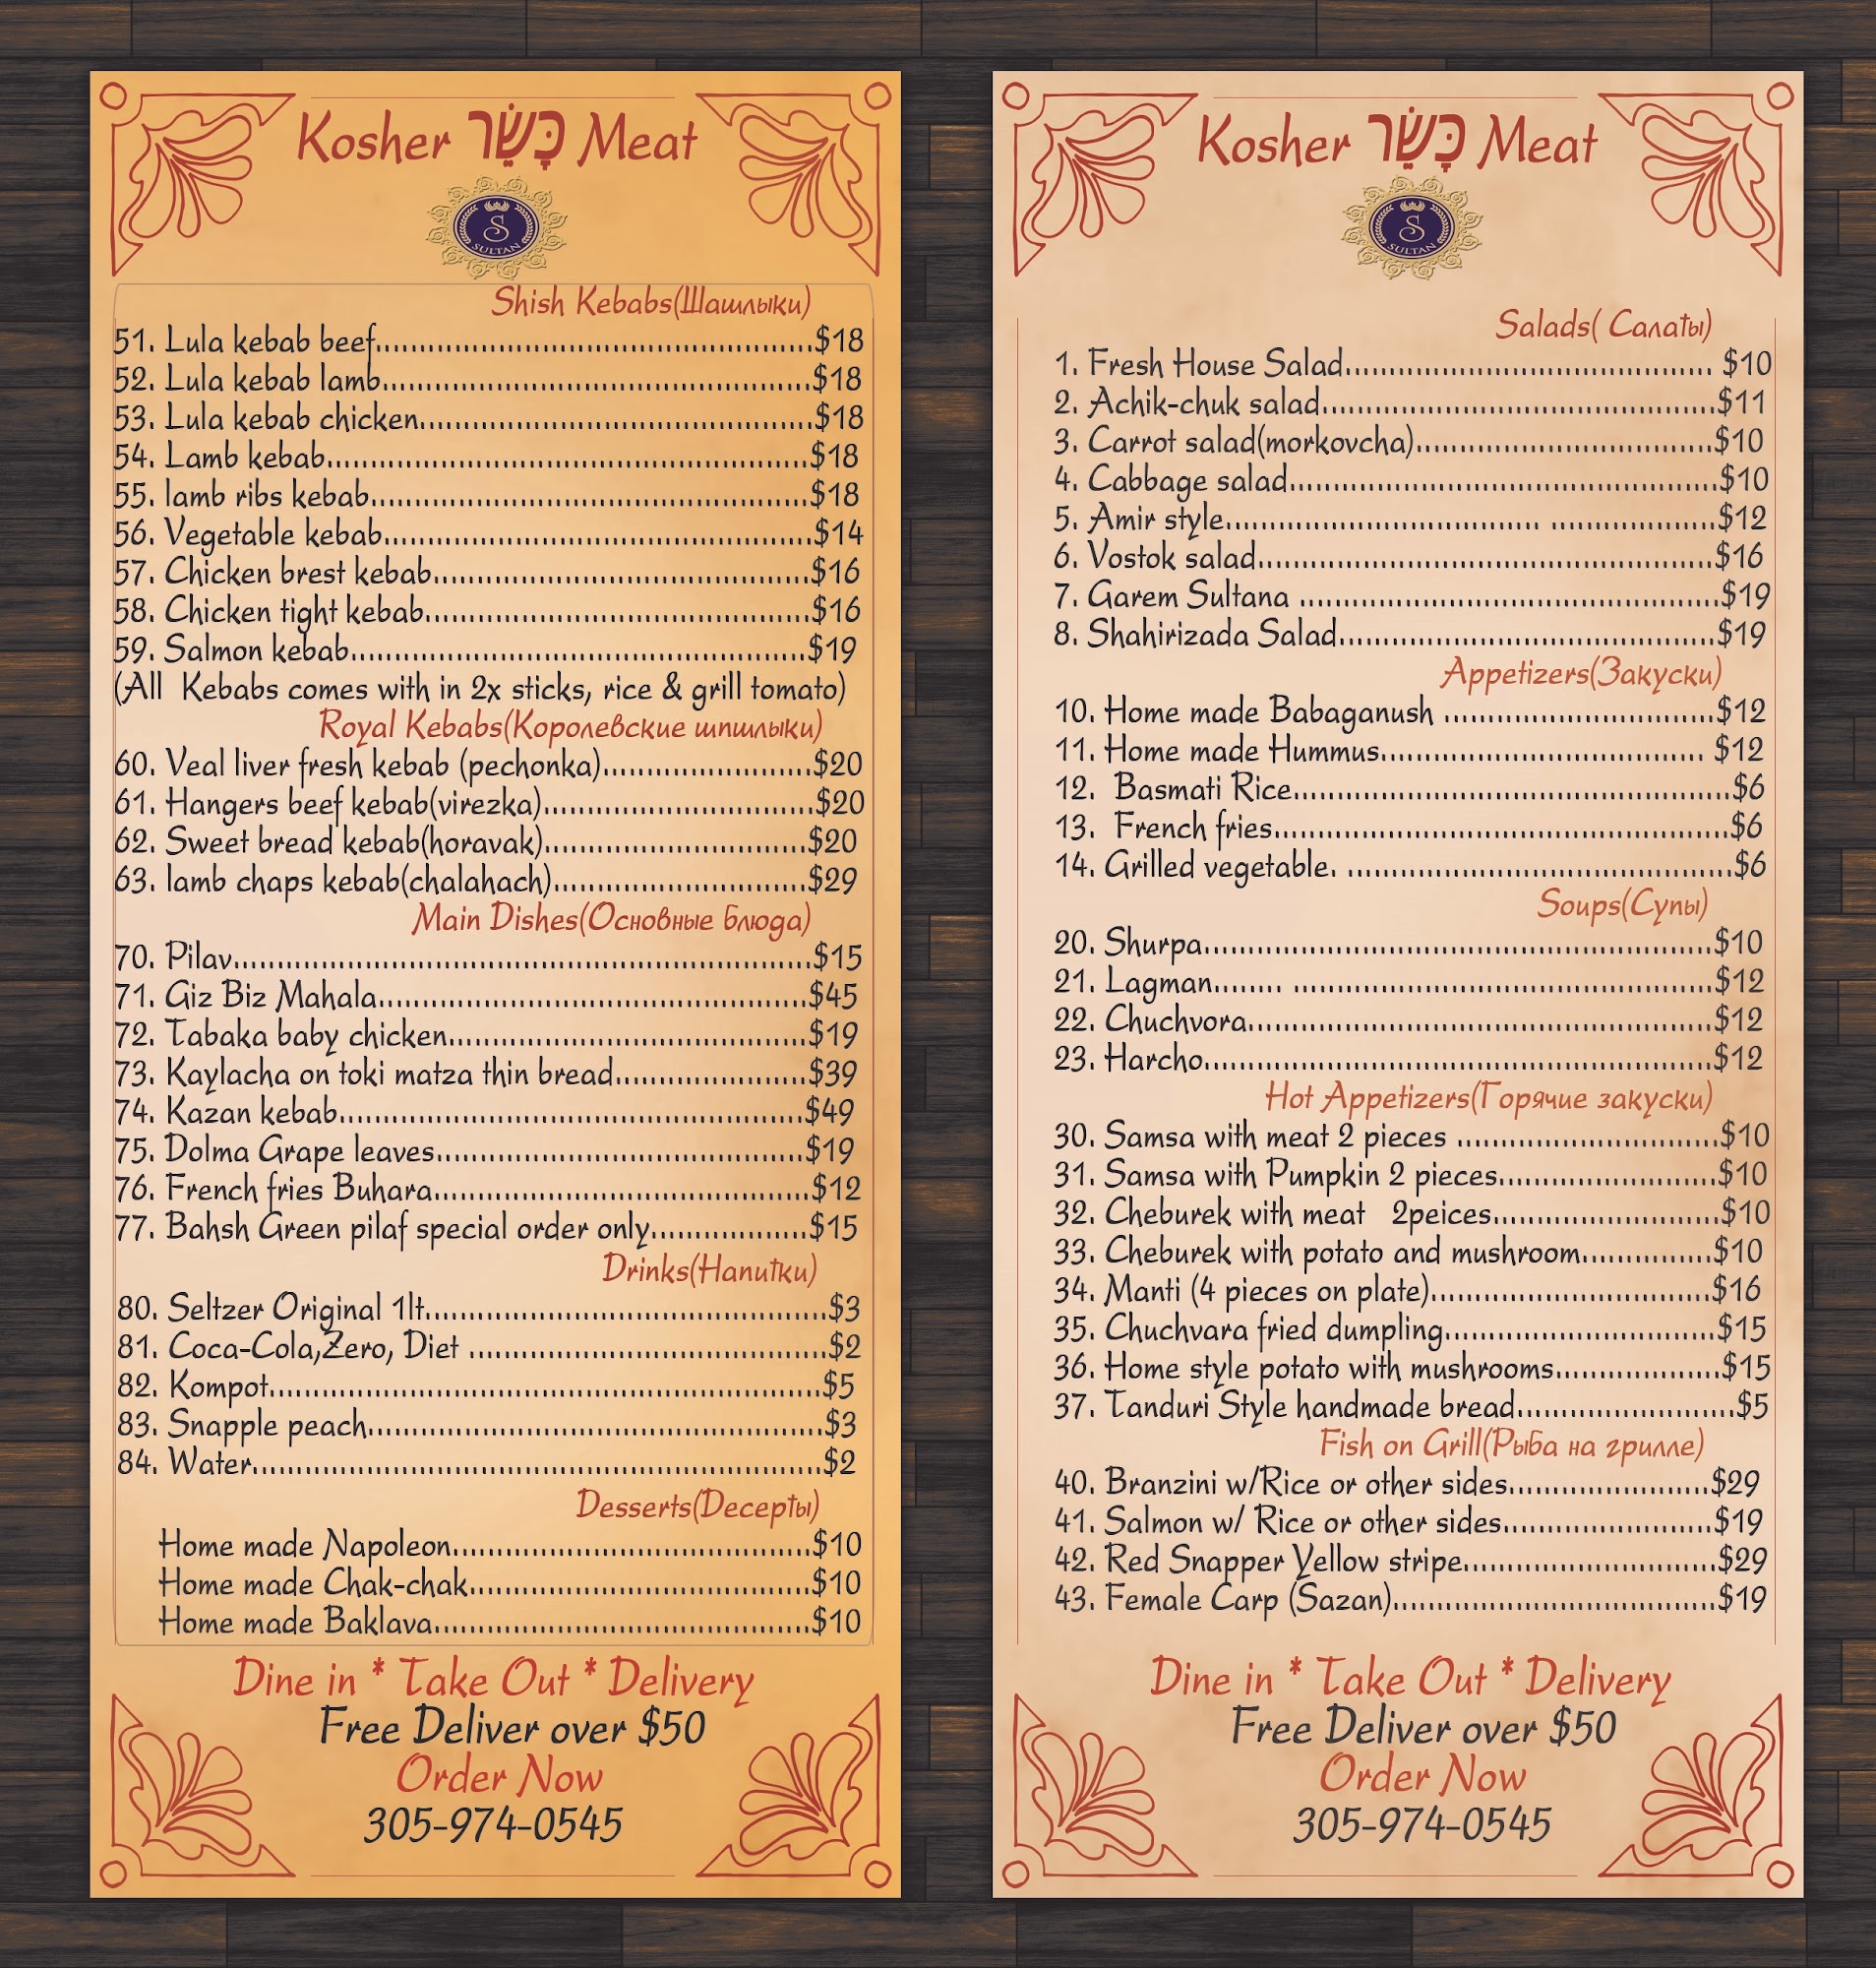 Kosher כָּשֵׁר Meat
S
SULTAN
Shish Kebabs(Шашлыки)
51. Lula kebab beef..................................................$18
52. Lula kebab lamb.................................................$18
53. Lula kebab chicken.............................................$18
54. Lamb kebab.......................................................$18
55. lamb ribs kebab..................................................$18
56. Vegetable kebab.................................................$14
57. Chicken brest kebab...........................................$16
58. Chicken tight kebab............................................$16
59. Salmon kebab....................................................$19
(All Kebabs comes with in 2x sticks, rice & grill tomato)
Royal Kebabs(Королевские шпшлыки)
60. Veal liver fresh kebab (pechonka)........................$20
61. Hangers beef kebab(virezka)...............................$20
62. Sweet bread kebab(horavak)..............................$20
63. lamb chaps kebab(chalahach).............................$29
Main Dishes(Основные блюда)
70. Pilav..................................................................$15
71. Giz Biz Mahala.................................................$45
72. Tabaka baby chicken.........................................$19
73. Kaylacha on toki matza thin bread......................$39
74. Kazan kebab.....................................................$49
75. Dolma Grape leaves..........................................$19
76. French fries Buhara...........................................$12
77. Bahsh Green pilaf special order only..................$15
Drinks(Напитки)
80. Seltzer Original 1lt..............................................$3
81. Coca-Cola,Zero, Diet .........................................$2
82. Kompot...............................................................$5
83. Snapple peach....................................................$3
84. Water.................................................................$2
Desserts(Десерты)
Home made Napoleon.........................................$10
Home made Chak-chak.......................................$10
Home made Baklava...........................................$10
Dine in * Take Out * Delivery
Free Deliver over $50
Order Now
305-974-0545
Kosher כָּשֵׁר Meat
S
SULTAN
Salads( Салаты)
1. Fresh House Salad.......................................... $10
2. Achik-chuk salad.............................................$11
3. Carrot salad(morkovcha)..................................$10
4. Cabbage salad.................................................$10
5. Amir style.................................... ...................$12
6. Vostok salad....................................................$16
7. Garem Sultana ................................................$19
8. Shahirizada Salad...........................................$19
Appetizers(Закуски)
10. Home made Babaganush ...............................$12
11. Home made Hummus..................................... $12
12. Basmati Rice..................................................$6
13. French fries....................................................$6
14. Grilled vegetable. ............................................$6
Soups(Супы)
20. Shurpa..........................................................$10
21. Lagman........ ................................................$12
22. Chuchvora.....................................................$12
23. Harcho..........................................................$12
Hot Appetizers(Горячие закуски)
30. Samsa with meat 2 pieces ..............................$10
31. Samsa with Pumpkin 2 pieces.........................$10
32. Cheburek with meat 2peices..........................$10
33. Cheburek with potato and mushroom...............$10
34. Manti (4 pieces on plate)................................$16
35. Chuchvara fried dumpling...............................$15
36. Home style potato with mushrooms...................$15
37. Tanduri Style handmade bread.........................$5
Fish on Grill(Рыба на грилле)
40. Branzini w/Rice or other sides.......................$29
41. Salmon w/ Rice or other sides........................$19
42. Red Snapper Yellow stripe.............................$29
43. Female Carp (Sazan).....................................$19
Dine in * Take Out * Delivery
Free Deliver over $50
Order Now
305-974-0545